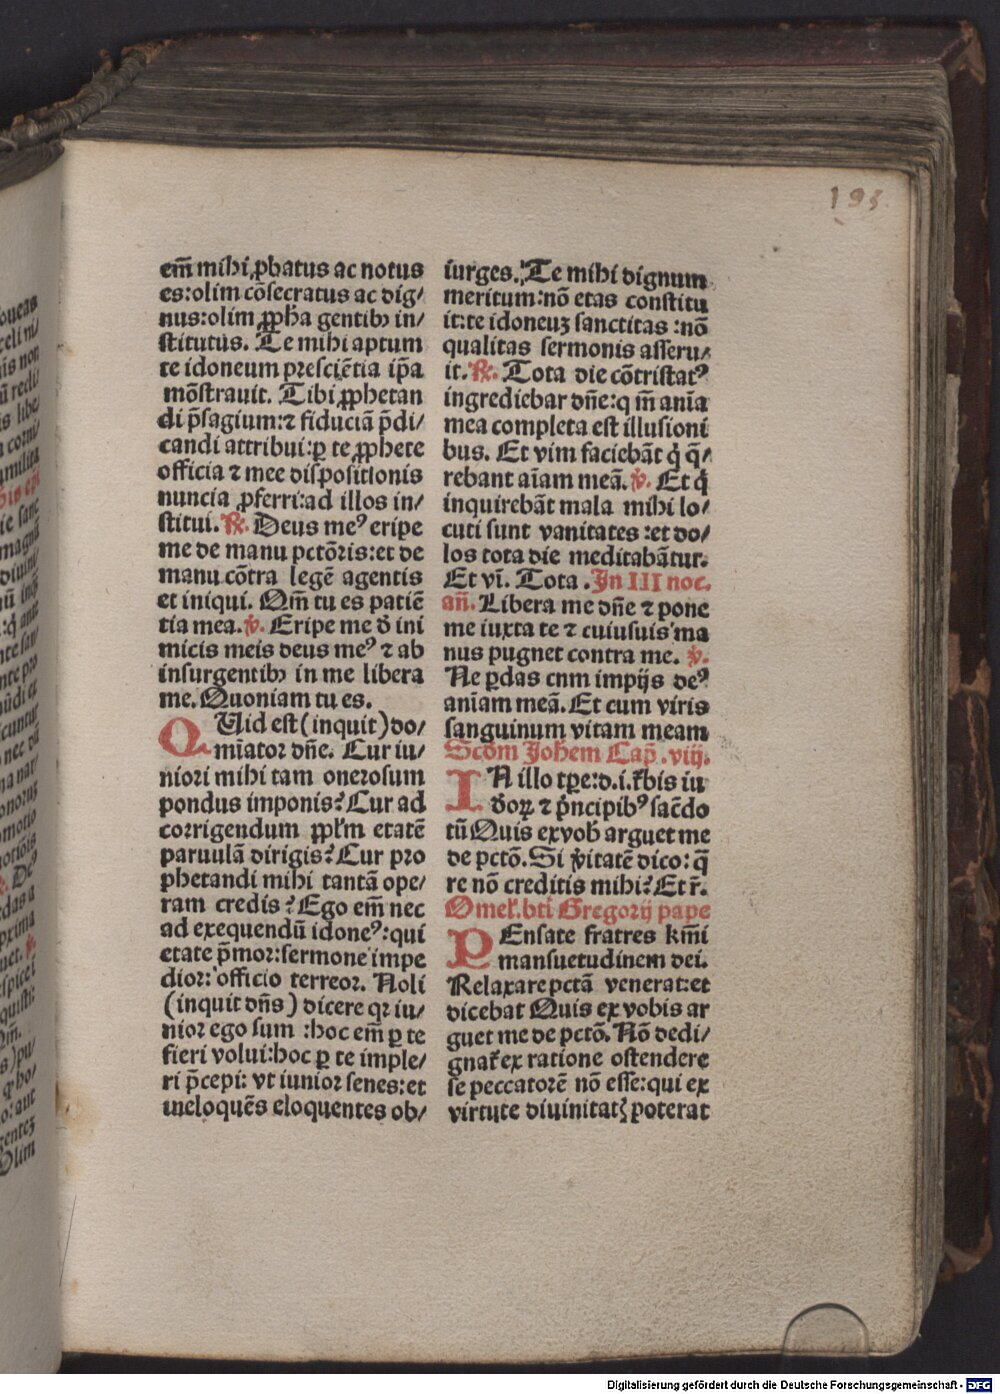 195.
em̄ mihi ꝓbatus ac notus
es: olim cōsecratus ac dig/
nus: olim ꝓph̄a gentibꝫ in/
stitutus. Te mihi aptum
te idoneum presciētia ip̄a
mōstrauit. Tibi ꝓphetan
di p̄sagium: ⁊ fiduciā p̄di/
candi attribui: ꝑ te ꝓphete
officia ⁊ mee dispositionis
nuncia ꝓferri: ad illos in/
stitui. ℟. Deus meꝰ eripe
me de manu pctōris: et de
manu cōtra legē agentis
et iniqui. Qm̄ tu es patiē
tia mea. ℣. Eripe me d̄ ini
micis meis deus meꝰ ⁊ ab
insurgentibꝫ in me libera
me. Quoniam tu es.
QUid est (inquit) do/
mīator dn̄e. Cur iu/
niori mihi tam onerosum
pondus imponis? Cur ad
corrigendum ꝓpl̄m etatē
paruulā dirigis? Cur pro
phetandi mihi tantā ope/
ram credis? Ego em̄ nec
ad exequendū idoneꝰ: qui
etate p̄mor: sermone impe
dior: officio terreor. Noli
(inquit dn̄s) dicere qꝛ iu/
nior ego sum: hoc em̄ ꝑ te
fieri volui: hoc ꝑ te imple/
ri p̄cepi: vt iunior senes: et
ineloquēs eloquentes ob/
iurges. Te mihi dignum
meritum: nō etas constitu
it: te idoneuꝫ sanctitas: nō
qualitas sermonis asseru/
it. ℟. Tota die cōtristatꝰ
ingrediebar dn̄e: q m̄ anīa
mea completa est illusioni
bus. Et vim faciebāt q̇ q̄/
rebant aīam meā. ℣. Et q̇
inquirebāt mala mihi lo/
cuti sunt vanitates: et do/
los tota die meditabātur.
Et vī. Tota. In III noc.
an̄. Libera me dn̄e ⁊ pone
me iuxta te ⁊ cuiusuis ma
nus pugnet contra me. ℣.
Ne ꝑdas cnm impijs deꝰ
anīam meā. Et cum viris
sanguinum vitam meam
Scd̄m Joh̄em Cap̄. viij.
IN illo tp̄e: d. i. t̄bis iu
d̄oꝝ ⁊ p̄ncipibꝰ sac̄do
tū Quis ex vob̄ arguet me
de pctō. Si v̄itatē dico: q̄
re nō creditis mihi? Et r̄.
Omel̄. bt̄i Gregorij pape
PEnsate fratres km̄i
mansuetudinem dei.
Relaxare pctā venerat: et
dicebat Quis ex vobis ar
guet me de pctō. Nō dedi/
gnat̄ ex ratione ostendere
se peccatorē nō esse: qui ex
virtute diuinitatꝭ poterat
Digitalisierung gefördert durch die Deutsche Forschungsgemeinschaft - DFG